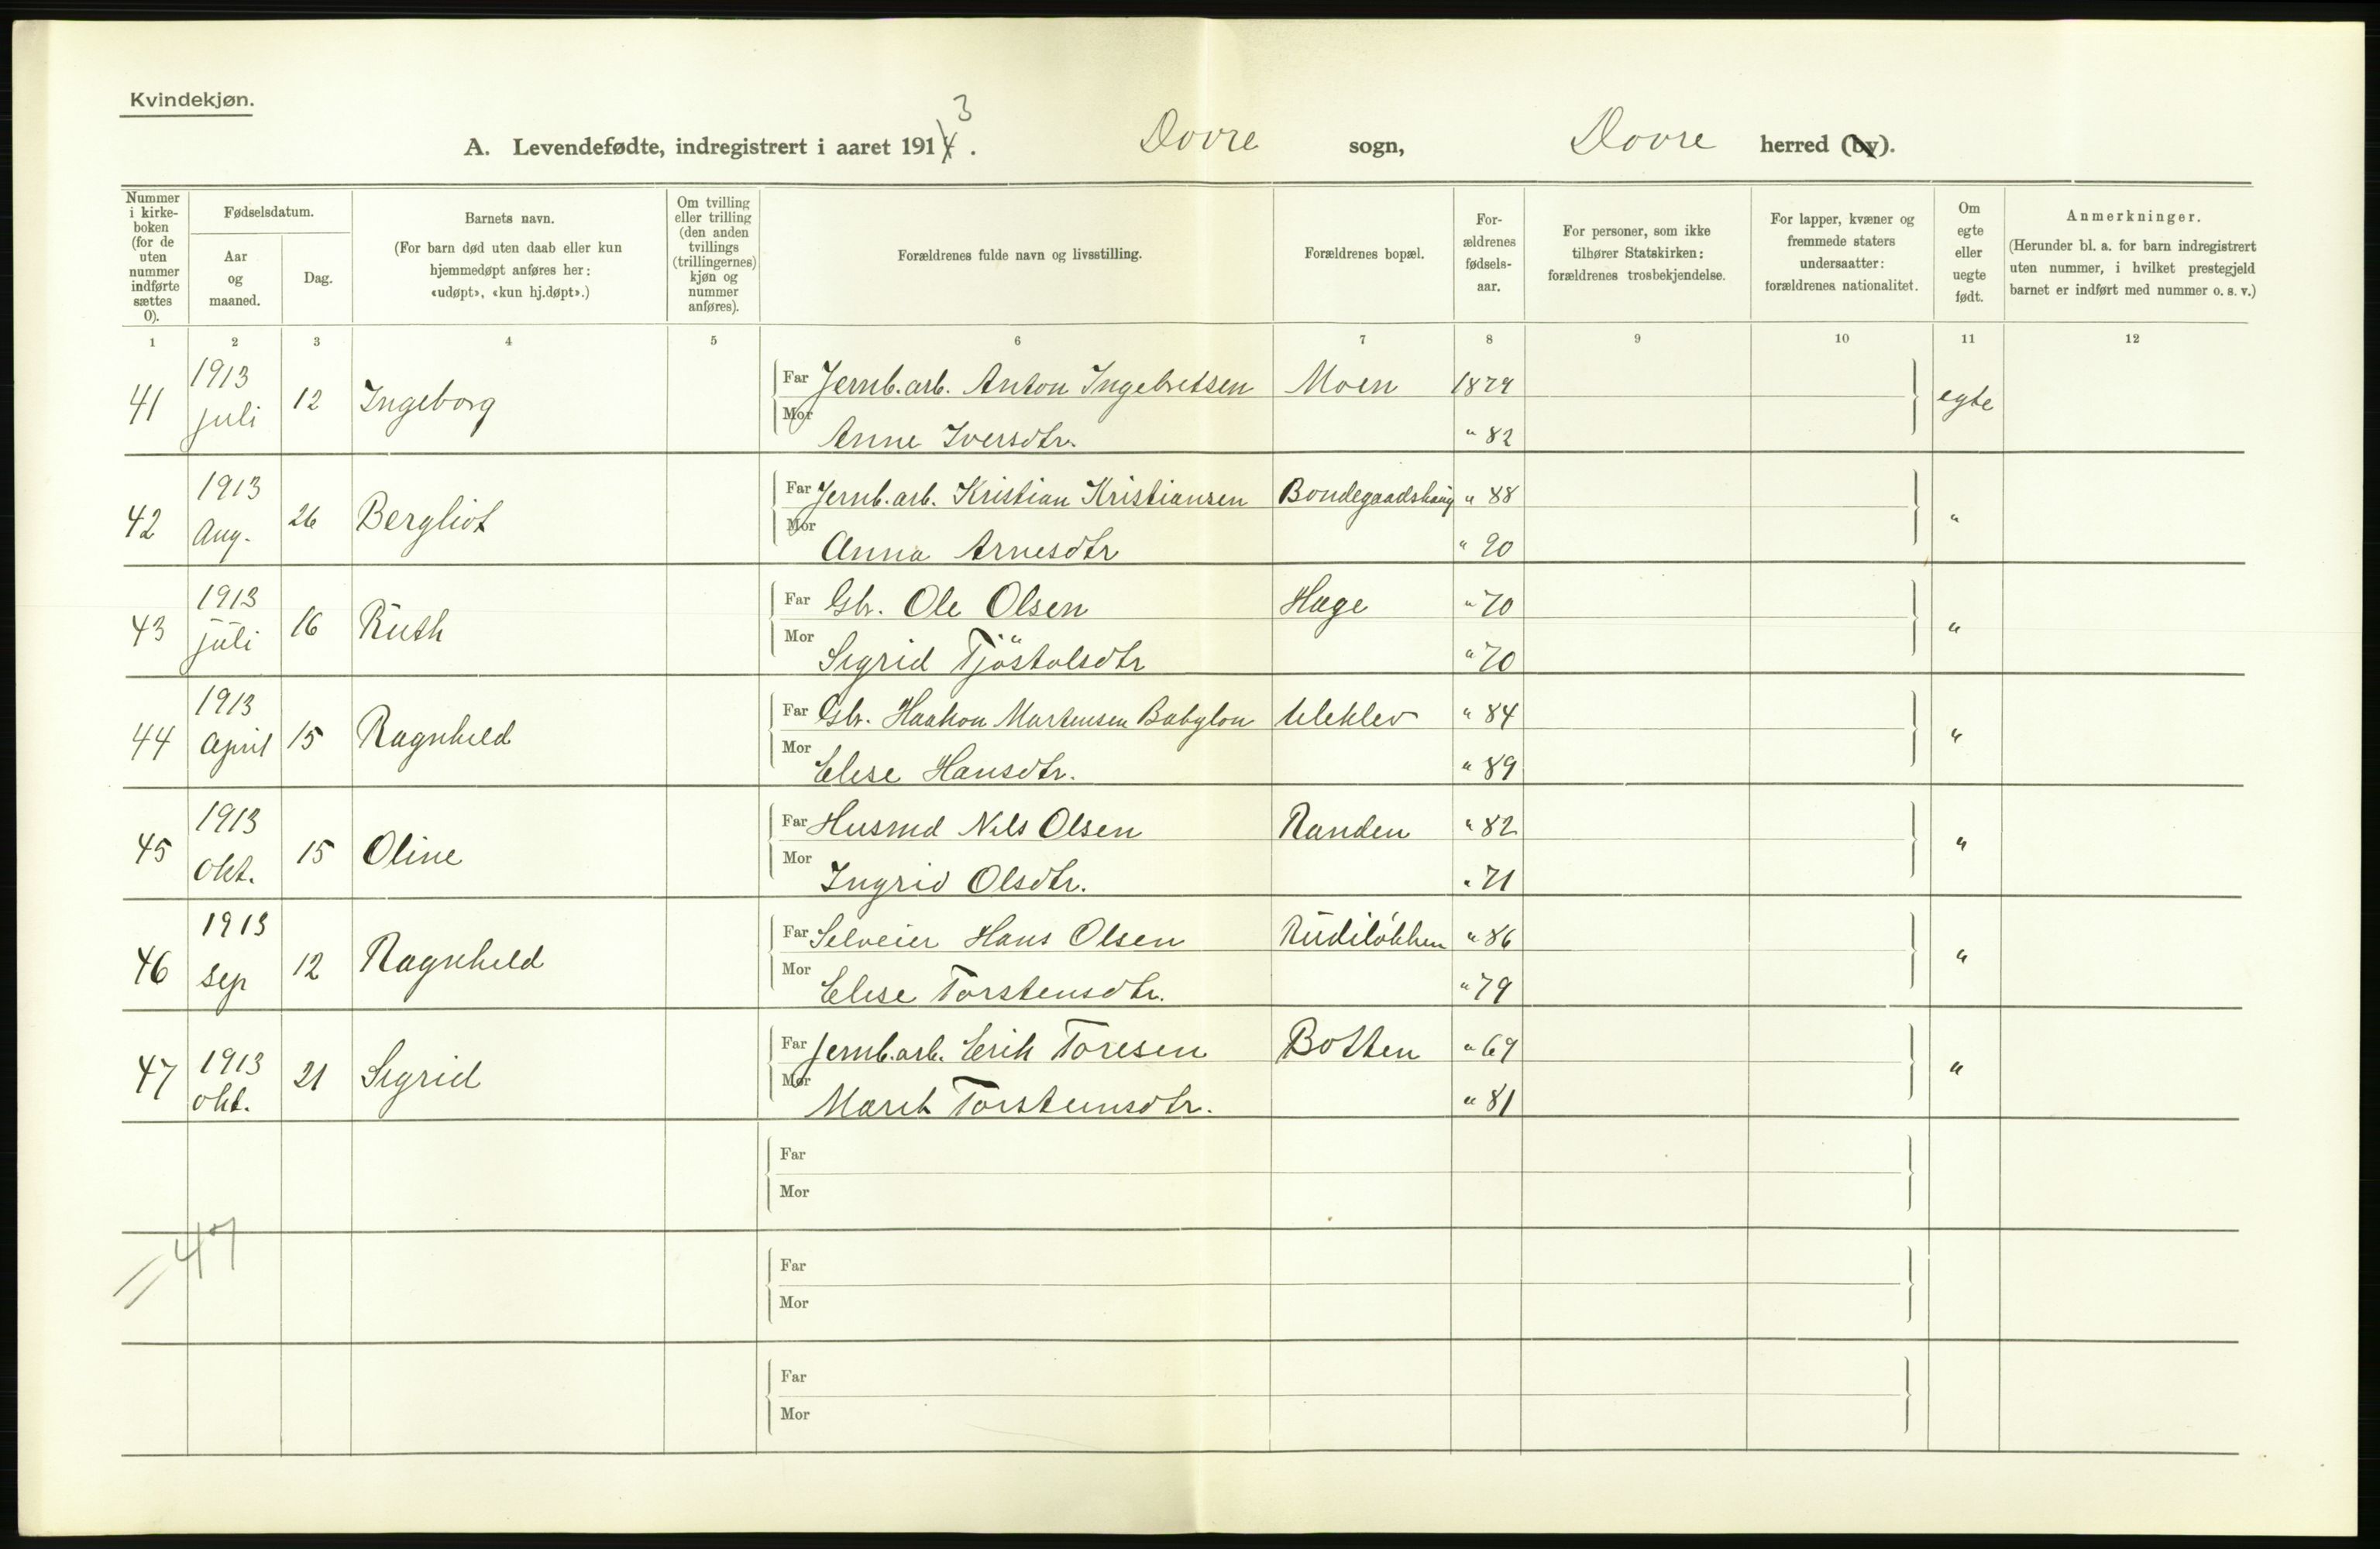 Kvindekjøn.
A. Levendefødte, indregistrert i aaret 1913. Dovre sogn, Dovre herred (by).
Nummer i kirke-boken (for de uten nummer indførte sættes 0).
Fødselsdatum.
Aar og maaned.
Dag.
Barnets navn.
(For barn død uten daab eller kun hjemmedøpt anføres her: «udøpt», «kun hj.døpt».)
Om tvilling eller trilling (den anden tvillings (trillingernes) kjøn og nummer anføres).
Forældrenes fulde navn og livsstilling.
Forældrenes bopæl.
For-ældrenes fødsels-aar.
For personer, som ikke tilhører Statskirken: forældrenes trosbekjendelse.
For lapper, kvæner og fremmede staters undersaatter: forældrenes nationalitet.
Om egte eller uegte født.
Anmerkninger.
(Herunder bl. a. for barn indregistrert uten nummer, i hvilket prestegjeld barnet er indført med nummer o. s. v.)
1 2 3 4 5 6 7 8 9 10 11 12
41 1913 juli 12 Ingeborg Far Jernb.arb. Anton Ingebretsen Moen 1879 egte
Mor Anne Iversdtr. " 82
42 1913 Aug. 26 Bergliot Far Jernb.arb. Kristian Kristiansen Bondegaardshaug " 88 "
Mor Anna Arnesdtr " 90
43 1913 juli 16 Ruth Far Gbr. Ole Olsen Hage " 70 "
Mor Sigrid Tjöstolsdtr " 70
44 1913 April 15 Ragnhild Far Gbr. Haakon Martensen Babylon Uleklev " 84 "
Mor Elise Hansdtr. " 89
45 1913 Okt. 15 Oline Far Husmd Nils Olsen Randen " 82 "
Mor Ingrid Olsdtr. " 71
46 1913 Sep 12 Ragnhild Far Selveier Hans Olsen Rudiløkken " 86 "
Mor Elise Torstensdtr. " 79
47 1913 Okt. 21 Sigrid Far Jernb.arb. Erik Toresen Botten " 69 "
Mor Marit Torsteinsdtr. " 81
Far
Mor
47
Far
Mor
Far
Mor